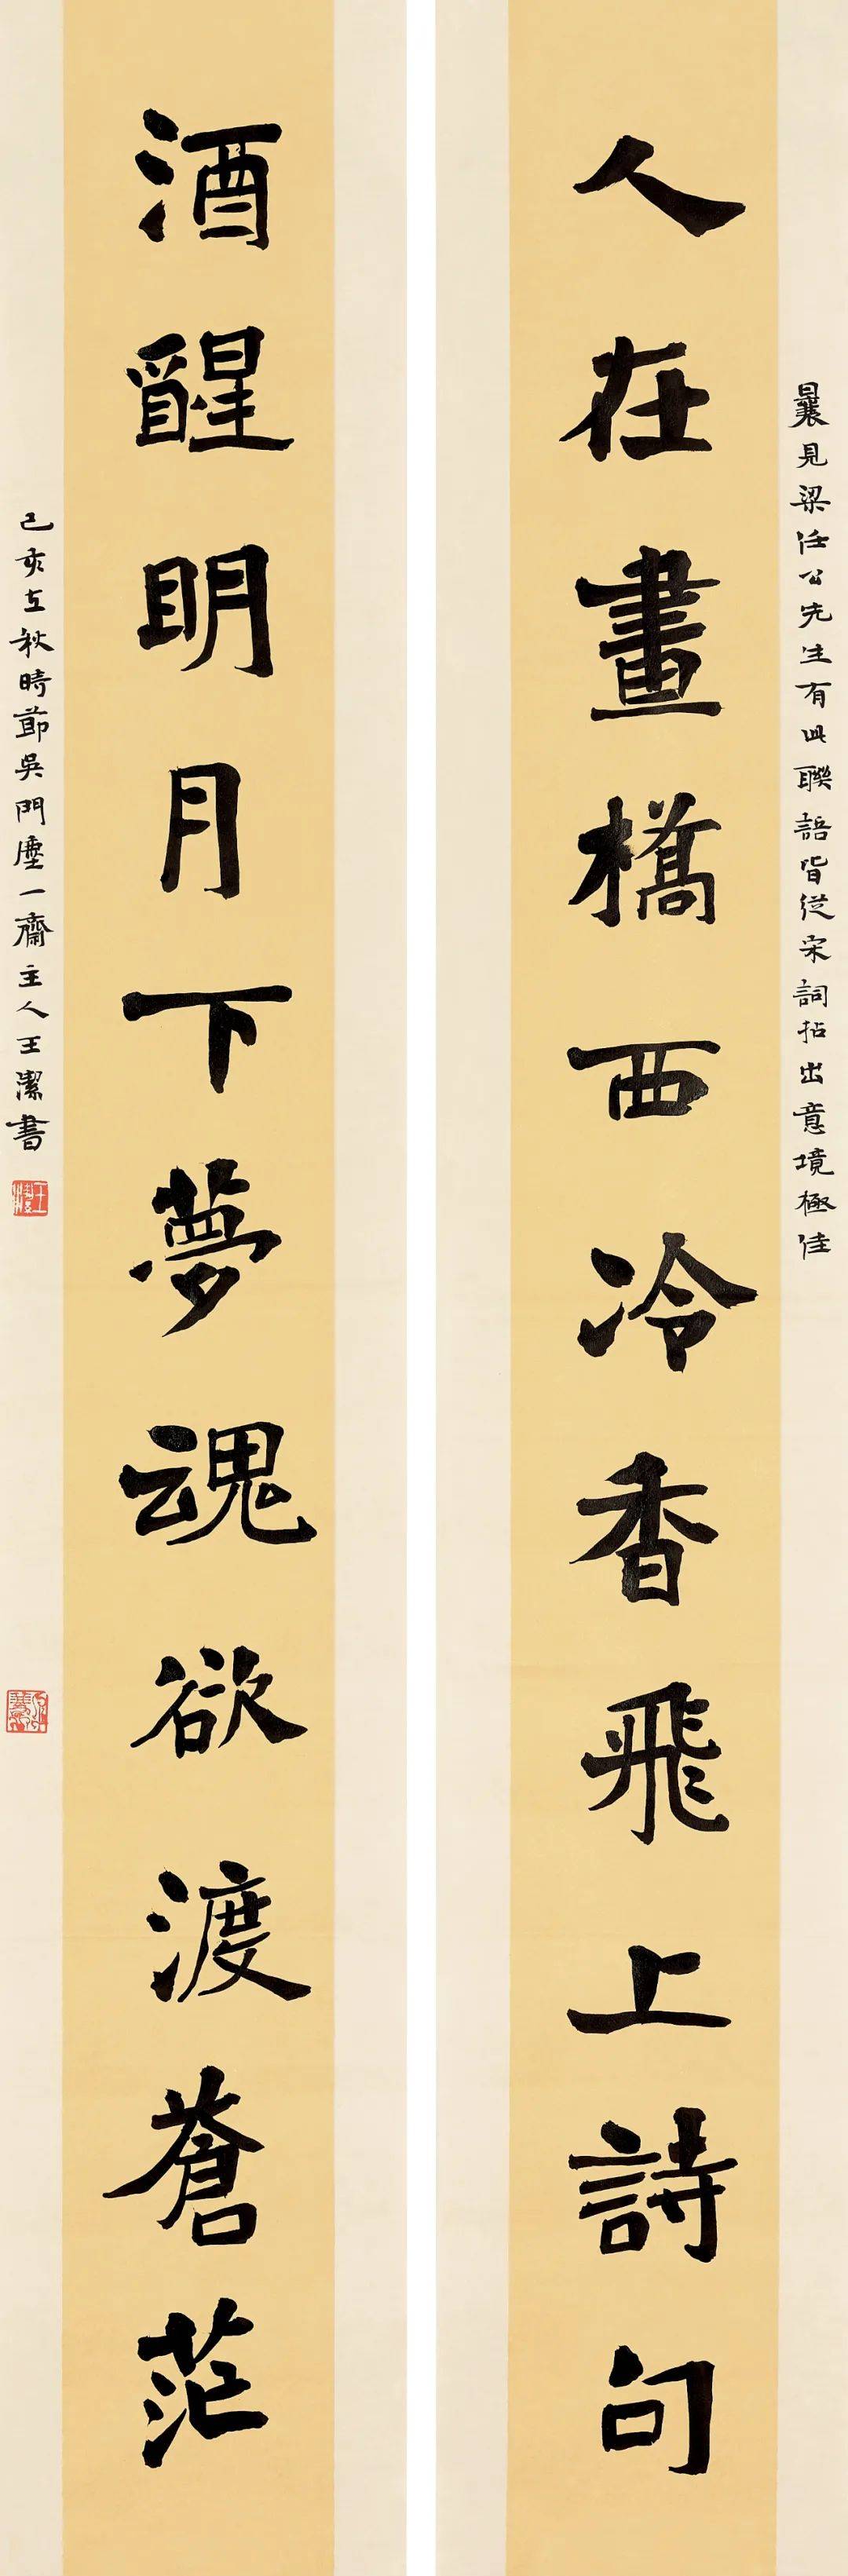 人在畫橋西冷香飛上詩句
酒醒明月下夢魂欲渡蒼茫
曩見梁任公先生有此聯語皆從宋詞拈出意境極佳
己亥立秋時節吳門塵一齋主人王潔書
王潔